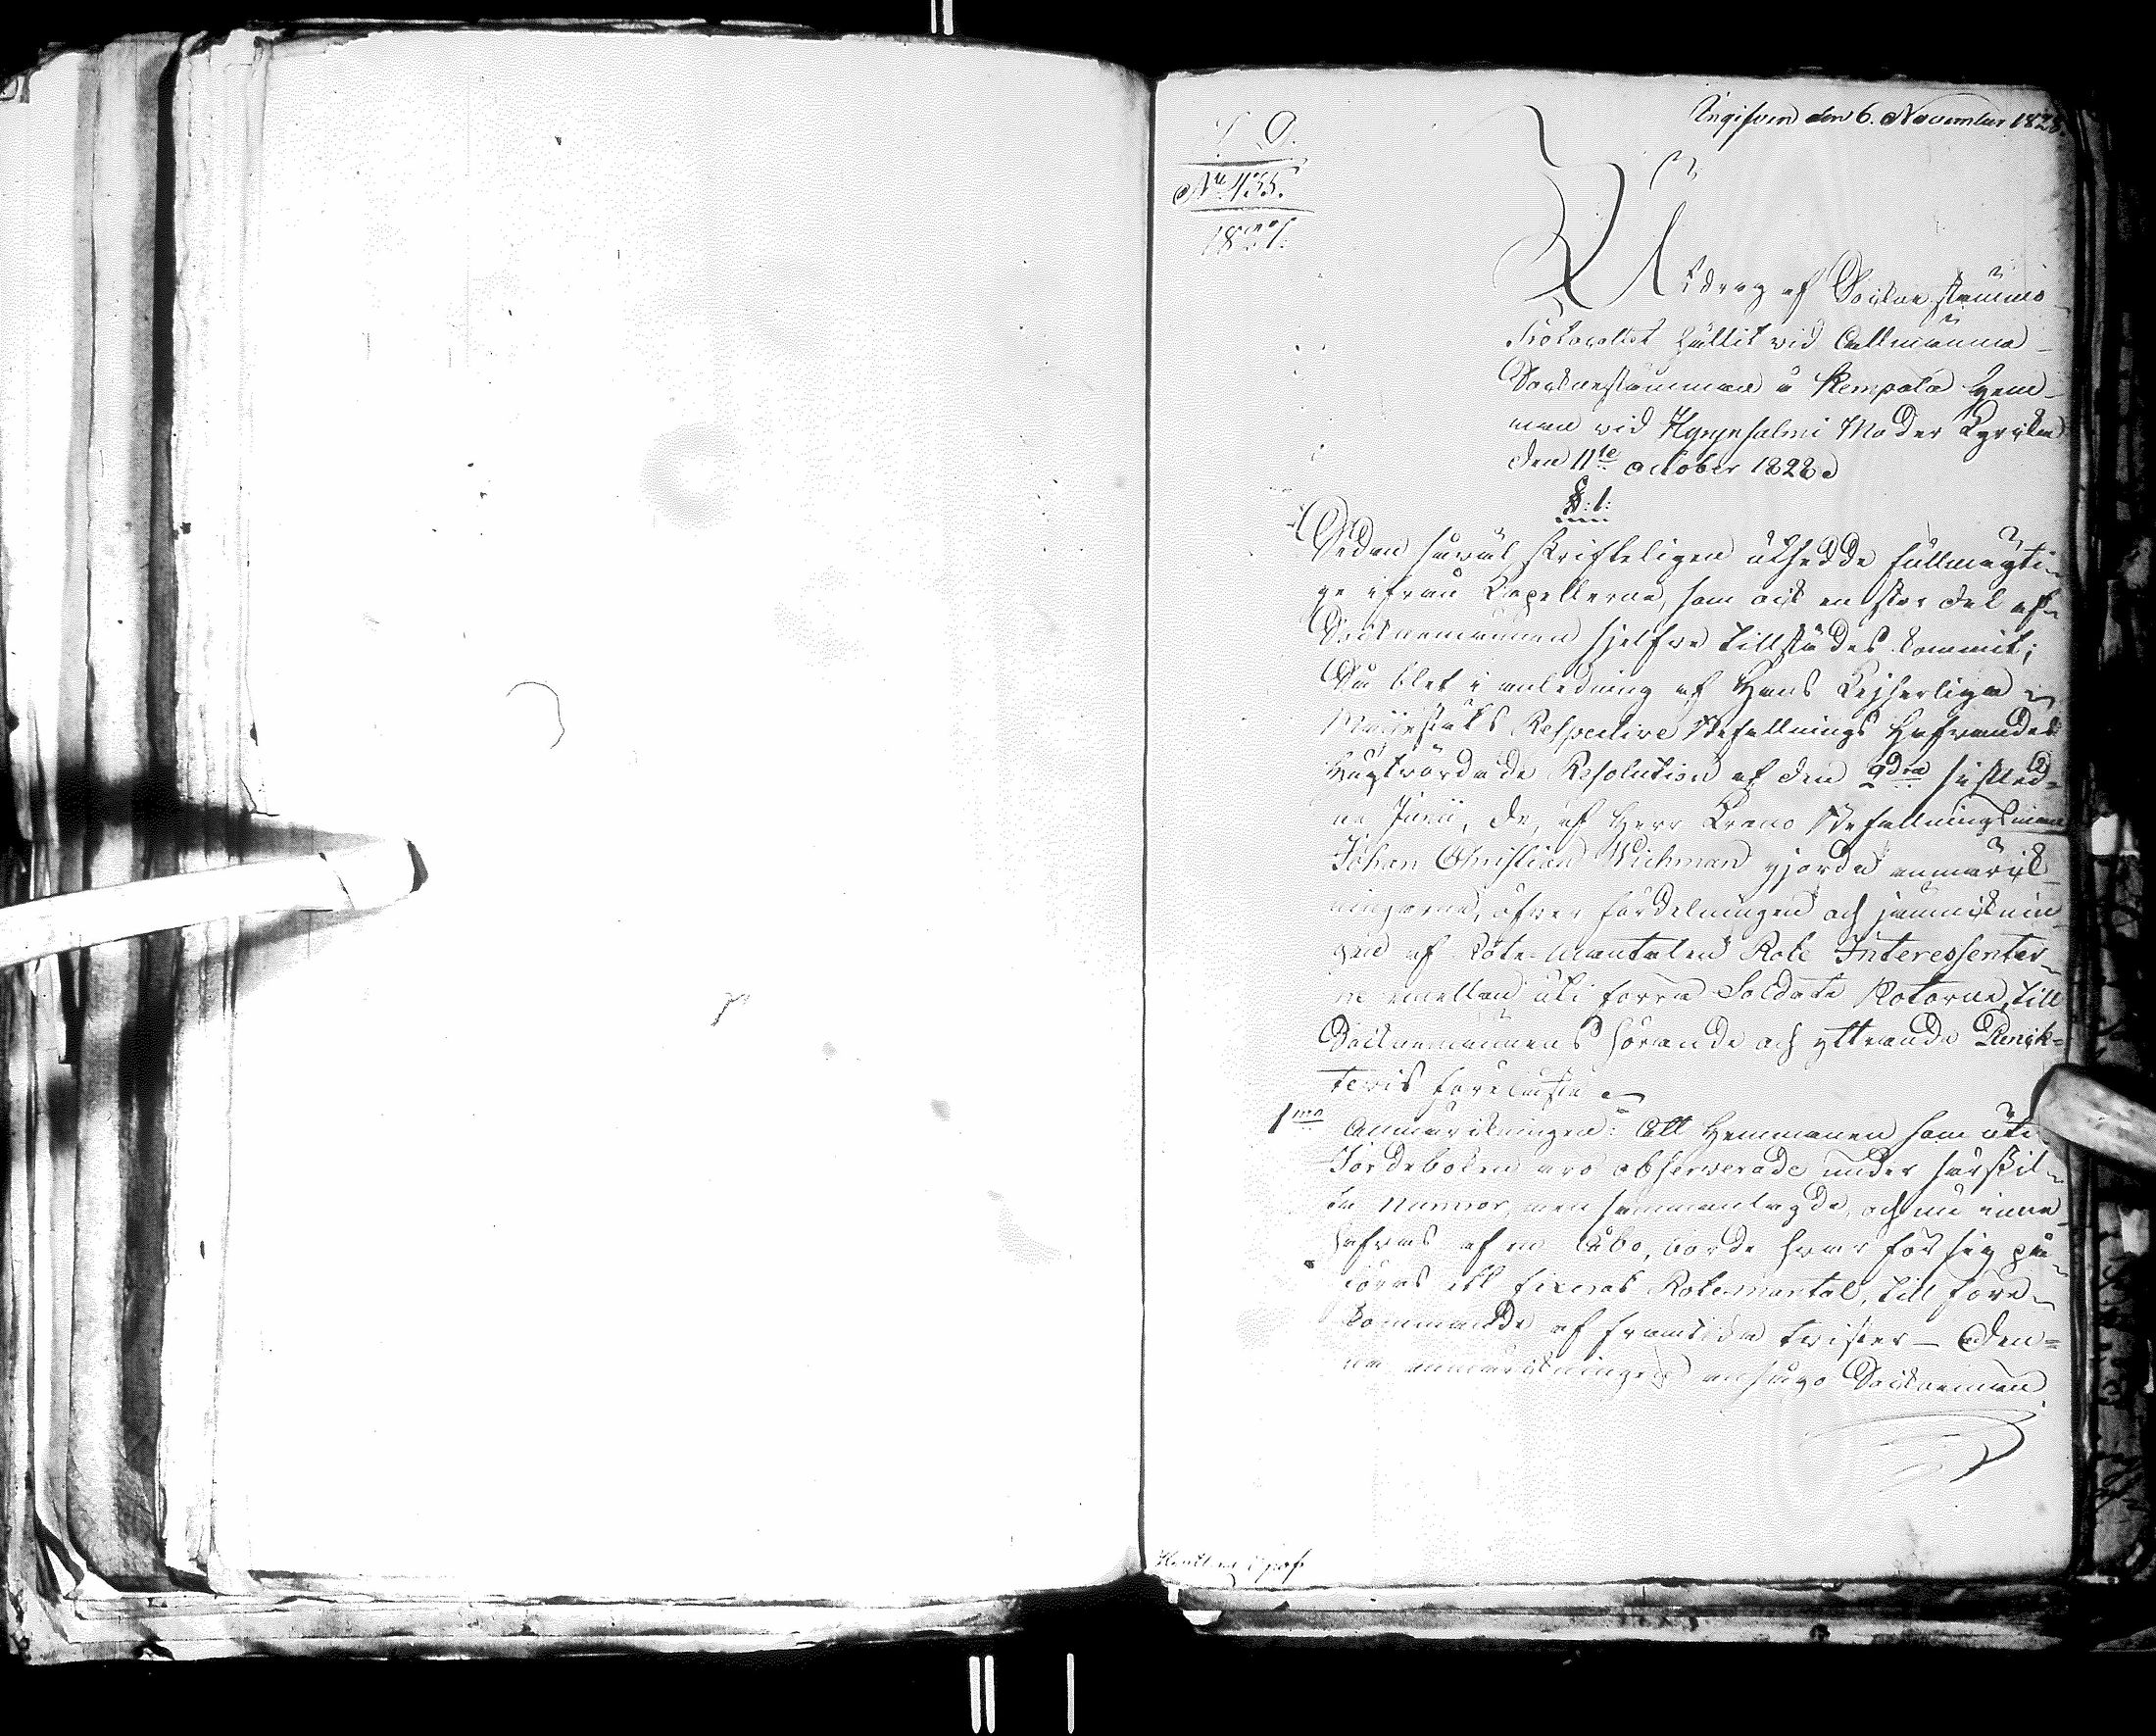 Ingifven den 6. November 1828.
L. D.
No 435.
1827.
Utdrag af Sockne stämmo
Protocollet hållit vid Allmänna
Socknestämman å Kempola Hem-
man vid Kyynsalmi Moder Kyrcka
den 11te October 1828.
§: 1:
Sedan såväl skrifteligen utsedde fullmägti-
ge ifrån Kapellerne, som ock en stor del af
Socknemännen sjelfve tillstädes kommit;
Så blef i anledning af Hans Kejserliga
Majestäts Respective Befallnings Hafvandes
Högtvördade Resolution af den 2dra sistled-
ne Junii, de, af Herr Krono Befallningsman
Johan Christian Wichman gjorda anmärck-
ningarne, öfver fördelningen och jemncknin
gen af Rote-Mantalen Rote Interessenter-
ne emellan uti förra Soldate Rotorne, till
Socknemännens hörande och yttrande Punck-
tevis föreläste
1mo Anmärckningen: Att Hemmanen som uti
Jordeboken äro observerade under särskil-
ta Numror, men sammanlagde, och nu inne-
hafvas af en Åbo, borde hvar för sig på-
föras ett fixerat Rotemantal, till före-
kommande af framtida tvister - Den-
na anmärckningen ansågo Socknemän